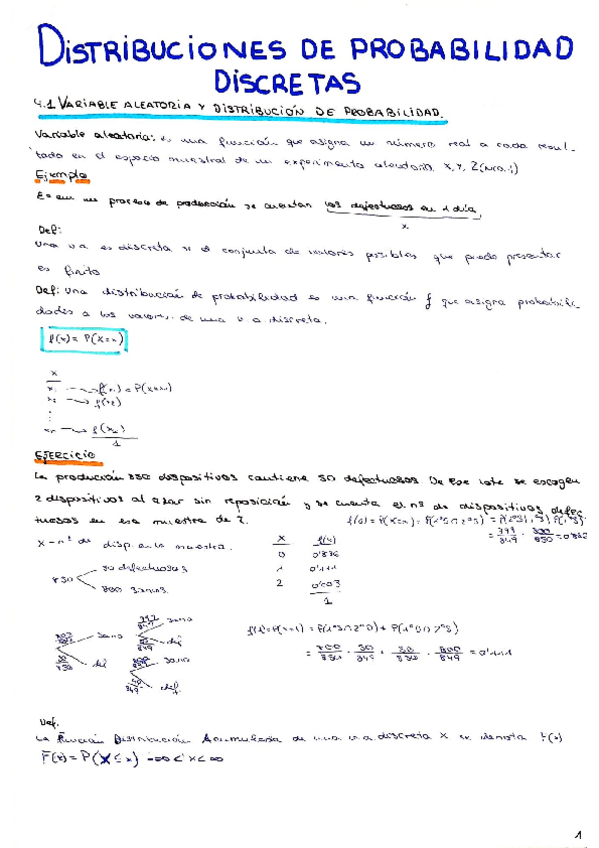 DISTRIBUCIONES DE PROBABILIDAD
DISCRETAS
4.1 VARIABLE ALEATORIA Y DISTRIBUCIÓN DE PROBABILIDAD.
Variable aleatoria: es una función que asigna un número real a cada resul-
tado en el espacio muestral de un experimento aleatorio. X, Y, Z
Ejemplo
E = en un proceso de producción se cuentan los defectuosos en 1 día.
x
Def:
Una va es discreta si el conjunto de valores posibles que puede presentar
es finito
Def: Una distribución de probabilidad es una función f que asigna probabili-
dades a los valores de una v a discreta.
f(x) = P(X=x)
x
f(x2)
1
EJERCICIO
La producción 850 dispositivos contiene 50 defectuosos. De ese lote se escogen
2 dispositivos al azar sin reposición y se cuenta el nº de dispositivos defec-
tuosos en esa muestra de 2.
x - nº de disp. en la muestra.
x f(x)
0
1 0'111
2 0'003
1
850
50 defectuosos
800 sanos.
sano
def
sano
def
sano
def.
Def.
La Función Distribución Acumulada de una v a discreta X se denota F(x)
F(x) = P(X ≤ x) -∞ < x < ∞
1